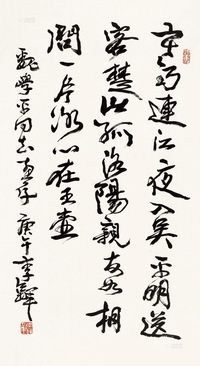 寒雨連江夜入吳平明送
客楚山孤洛陽親友如相
問一片冰心在玉壺
魏學正同志嘱 庚午李鐸